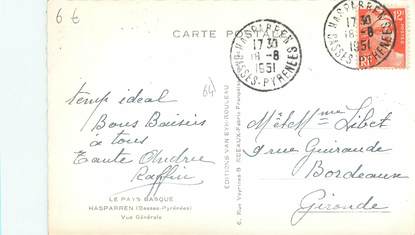 6 €
CARTE POSTALE
HASPARREN
17 30
18 -8
1951
BASSES-PYRENEES
HASPARREN
17 30
18 -8
1951
BASSES-PYRENEES
12F
64
temps ideal
Bons Baisers
à tous
Tante Andrée
Raffin
LE PAYS BASQUE
HASPARREN (Basses-Pyrénées)
Vue Générale
EDITIONS VAN EYH-ROULEAU
6, Rue Voyrines BORDEAUX
M et Mme Libet
9 rue Guiraude
Bordeaux
Gironde